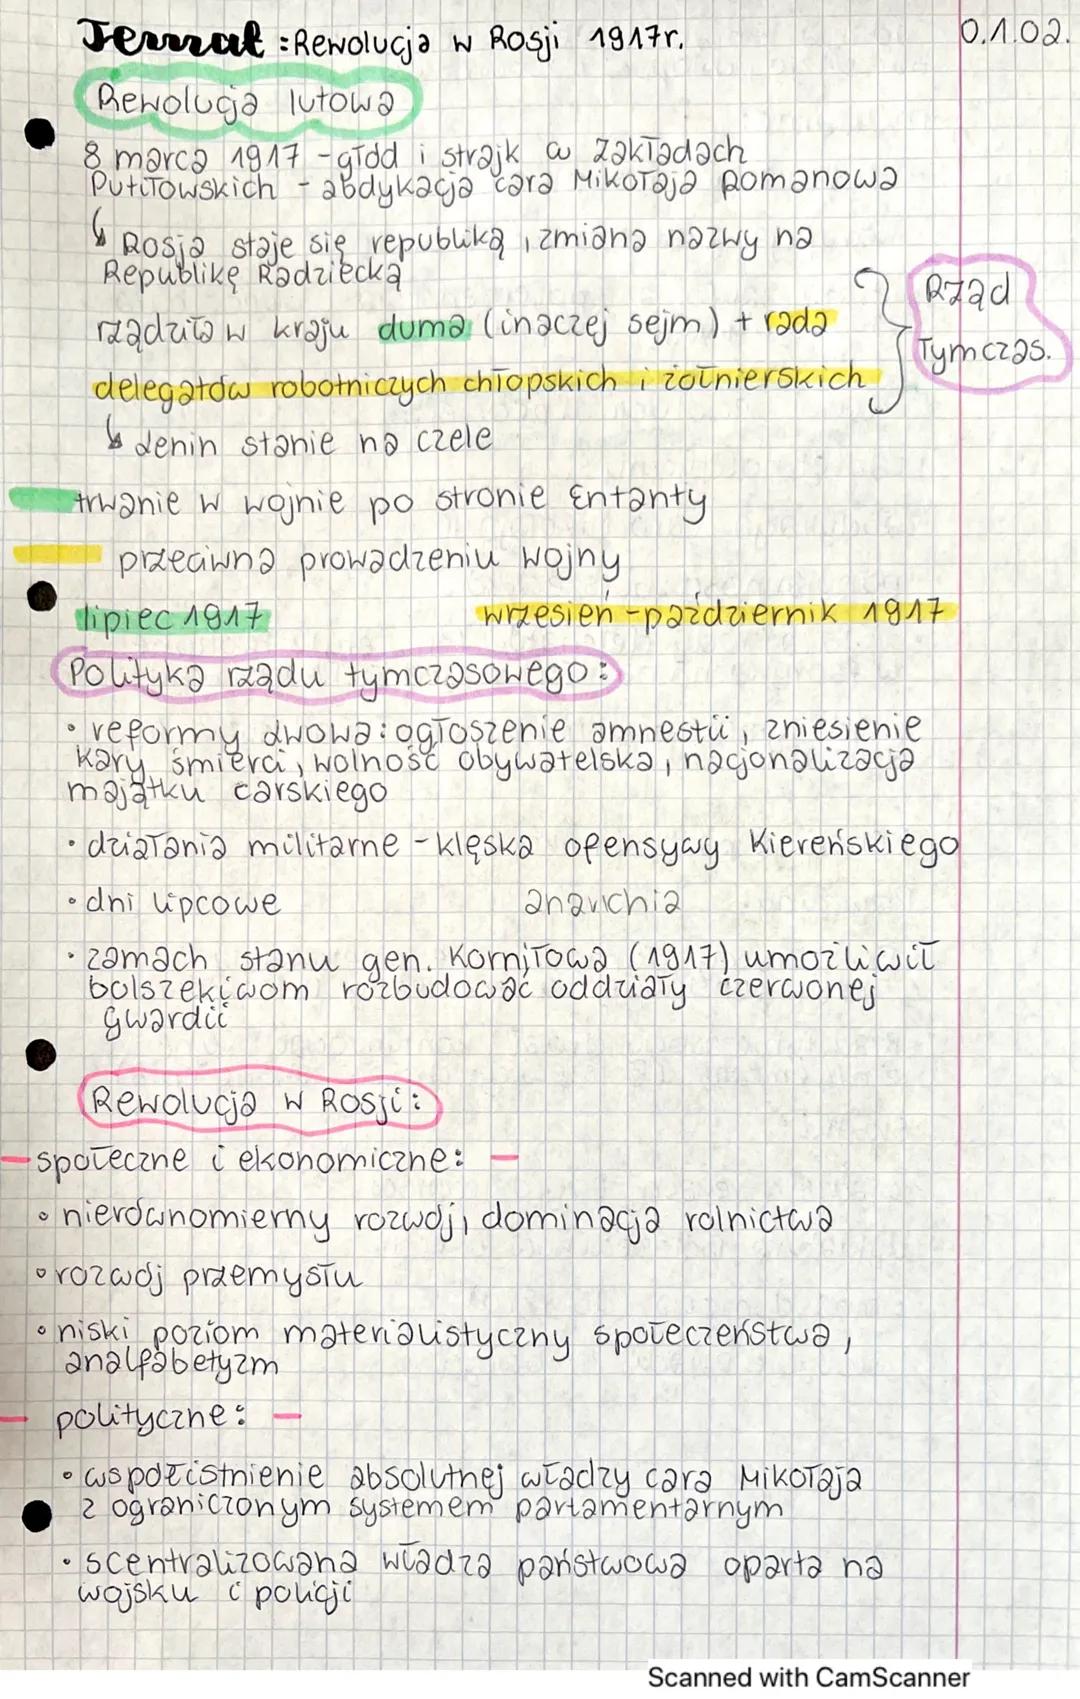 Temat : Rewolucja w Rosji 1917r.
0.1.02.
Rewolucja lutowa
8 marca 1917 - głód i strajk w Zakładach
Putiłowskich - abdykacja cara Mikołaja Romanowa
↳ Rosja staje się republiką, zmiana nazwy na
Republikę Radziecką
rządziła w kraju duma (inaczej sejm) + rada
delegatów robotniczych chłopskich i żołnierskich
Rząd
Tymczas.
↳ Lenin stanie na czele
trwanie w wojnie po stronie Ententy
przeciwna prowadzeniu wojny
lipiec 1917 wrzesień - październik 1917
Polityka rządu tymczasowego:
• reformy dwowa: ogłoszenie amnestii, zniesienie
kary śmierci, wolność obywatelska, nacjonalizacja
majątku carskiego
• działania militarne - klęska ofensywy Kiereńskiego
• dni lipcowe anarchia
• zamach stanu gen. Korniłowa (1917) umożliwił
bolszekiwom rozbudować oddziały czerwonej
gwardii
Rewolucja w Rosji:
- społeczne i ekonomiczne: -
• nierównomierny rozwój, dominacja rolnictwa
• rozwój przemysłu
• niski poziom materialistyczny społeczeństwa,
analfabetyzm
- polityczne: -
• współistnienie absolutnej władzy cara Mikołaja
z ograniczonym systemem parlamentarnym
• scentralizowana władza państwowa oparta na
wojsku i policji
Scanned with CamScanner